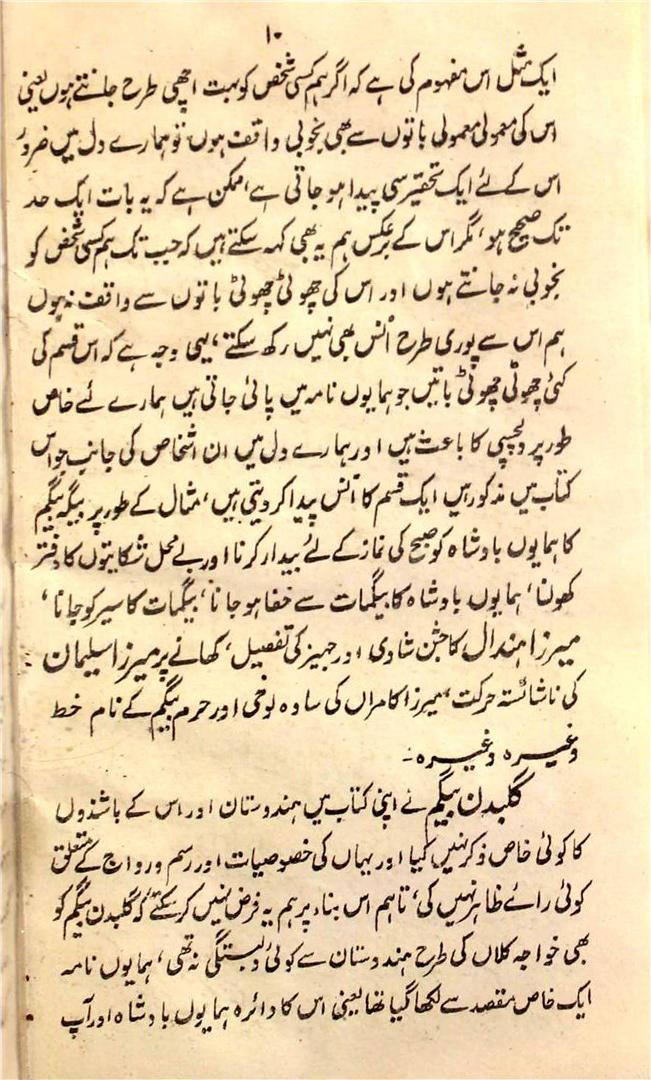 ۱۰
ایک مثل اس مفہوم کی ہے کہ اگر ہم کسی شخص کو بہت اچھی طرح جانتے ہوں یعنی
اس کی معمولی معمولی باتوں سے بھی بخوبی واقف ہوں تو ہمارے دل میں ضرور
اس کے لئے ایک تحقیر سی پیدا ہو جاتی ہے، ممکن ہے کہ یہ بات ایک حد
تک صحیح ہو، مگر اس کے برعکس ہم یہ بھی کہہ سکتے ہیں کہ جب تک ہم کسی شخص کو
بخوبی نہ جانتے ہوں اور اس کی چھوٹی چھوٹی باتوں سے واقف نہ ہوں
ہم اس سے پوری طرح اُنس بھی نہیں رکھ سکتے، یہی وجہ ہے کہ اس قسم کی
کئی چھوٹی چھوٹی باتیں جو ہمایوں نامہ میں پائی جاتی ہیں ہمارے لئے خاص
طور پر دلچسپی کا باعث ہیں اور ہمارے دل میں ان اشخاص کی جانب جو اس
کتاب میں مذکور ہیں ایک قسم کا اُنس پیدا کر دیتی ہیں، مثال کے طور پر بیگہ بیگم
کا ہمایوں بادشاہ کو صبح کی نماز کے لئے بیدار کرنا اور بے محل شکایتوں کا دفتر
کھولنا، ہمایوں بادشاہ کا بیگمات سے خفا ہو جانا، بیگمات کا سیر کو جانا،
میرزا ہندال کا جشن شادی اور جہیز کی تفصیل، کھانے پر میرزا سلیمان
کی ناشائستہ حرکت، میرزا کامراں کی سادہ لوحی اور حرم بیگم کے نام خط
وغیرہ وغیرہ۔
گلبدن بیگم نے اپنی کتاب میں ہندوستان اور اس کے باشندوں
کا کوئی خاص ذکر نہیں کیا اور یہاں کی خصوصیات اور رسم و رواج کے متعلق
کوئی رائے ظاہر نہیں کی، تاہم اس بناء پر ہم یہ فرض نہیں کر سکتے کہ گلبدن بیگم کو
بھی خواجہ کلاں کی طرح ہندوستان سے کوئی دلبستگی نہ تھی، ہمایوں نامہ
ایک خاص مقصد سے لکھا گیا تھا یعنی اس کا دائرہ ہمایوں بادشاہ اور آپ